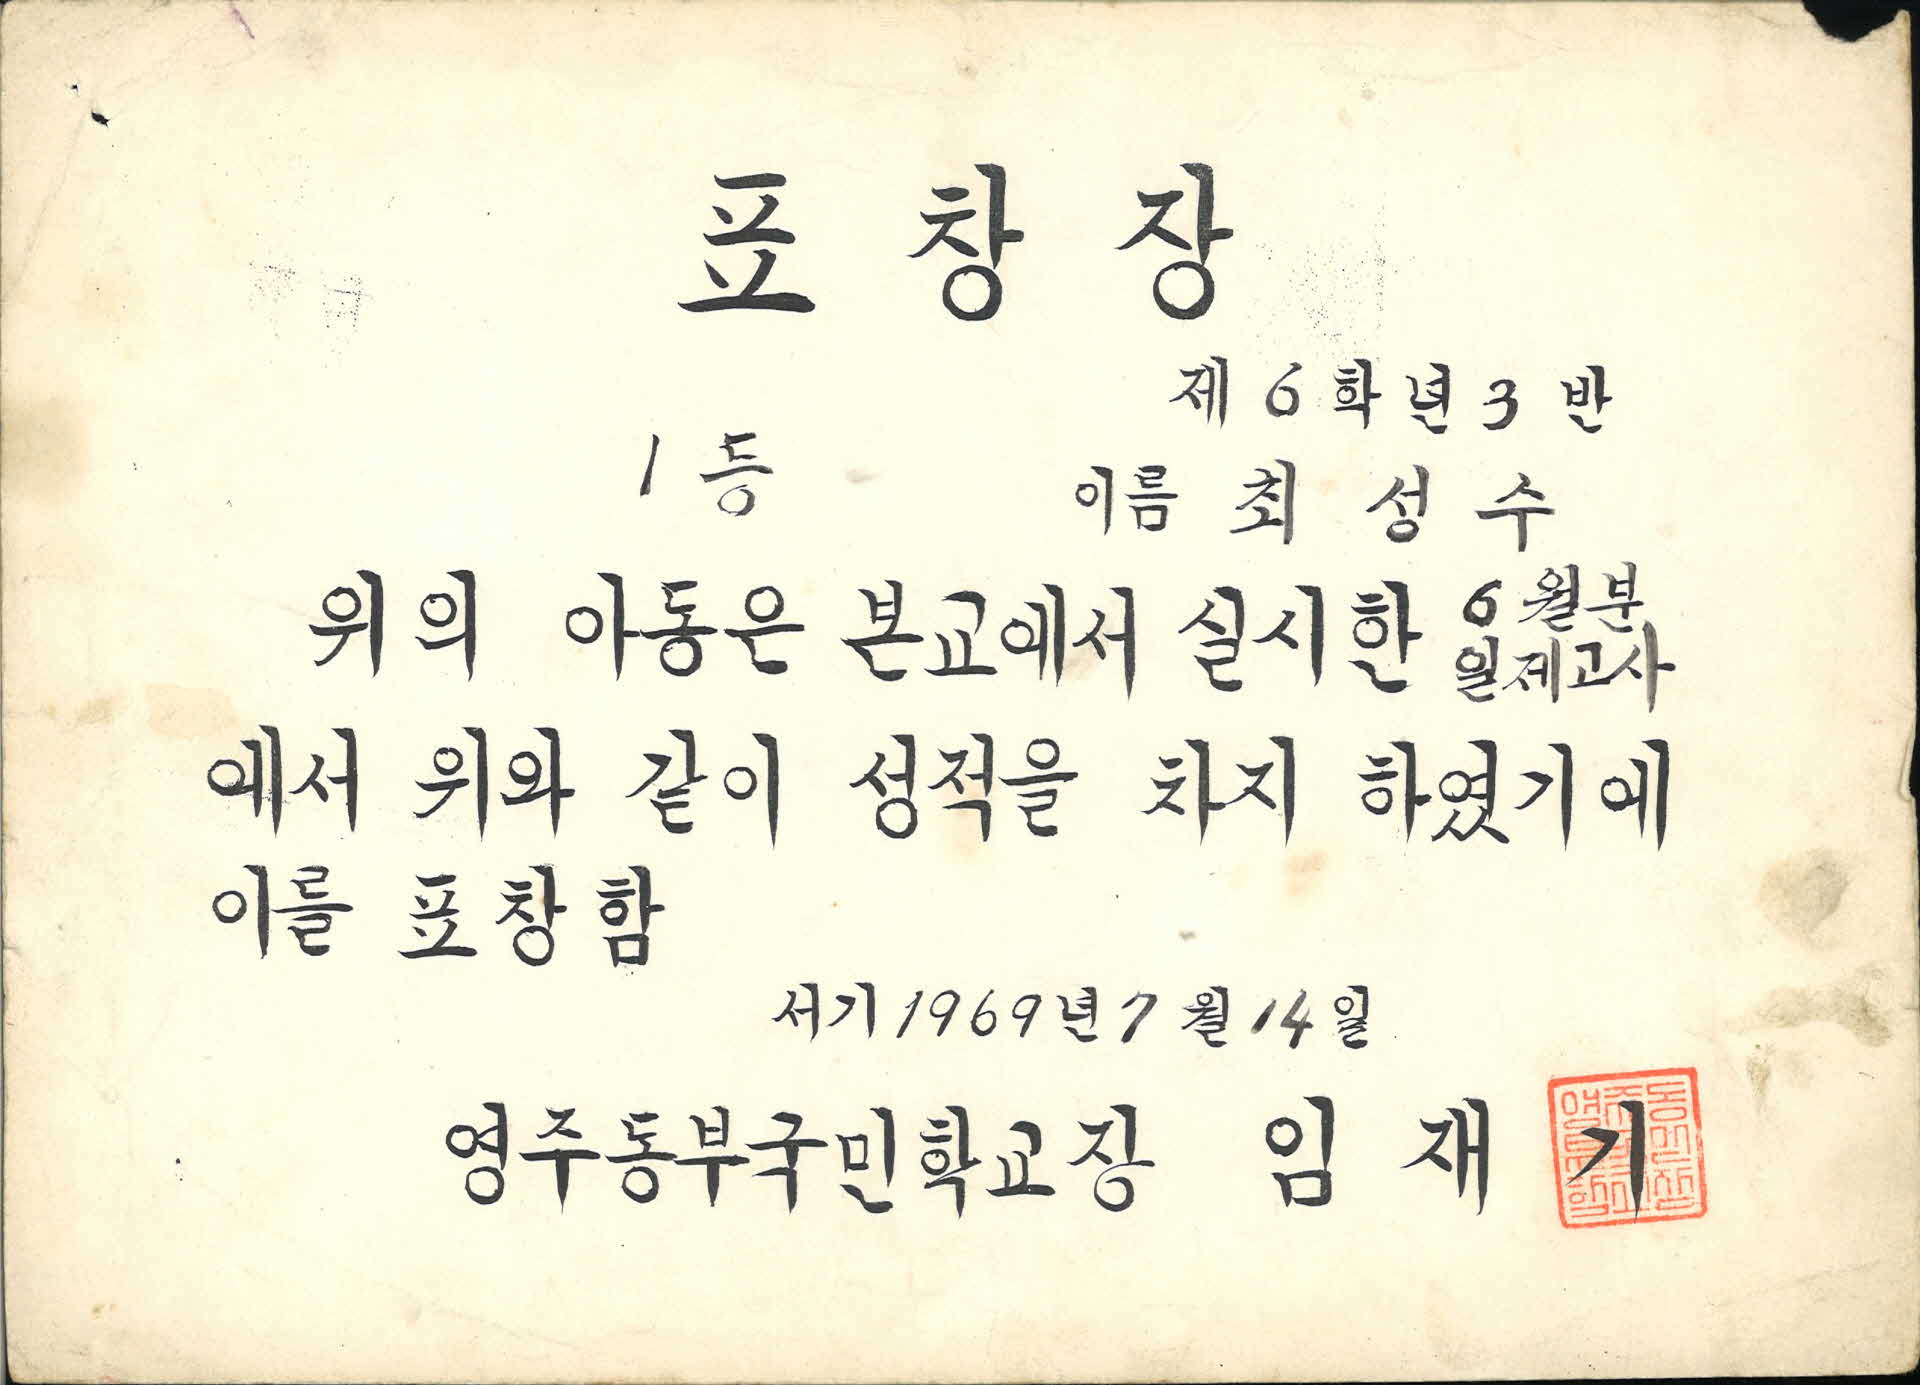 표창장
제 6 학년 3 반
1 등
이름 최 성 수
위의 아동은 본교에서 실시한 6월분 일제고사
에서 위와 같이 성적을 차지 하였기에
이를 표창함
서기 1969년 7월 14일
영주동부국민학교장 임 재 기